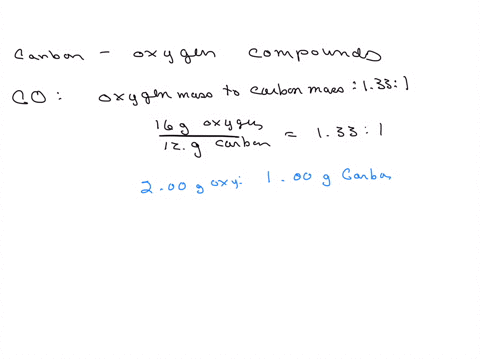 Carbon - oxygen compounds
CO: oxygen mass to carbon mass : 1.33 : 1
16 g oxygen
12. g carbon = 1.33 : 1
2.00 g oxy: 1.00 g Carbon